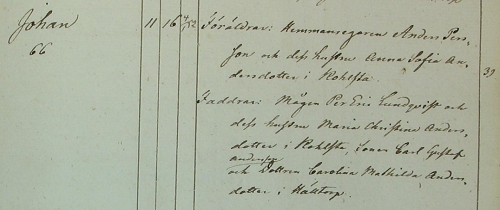 Johan 11 16 4/12 Föräldrar: Hemmansegaren Anders Pers-
66 son och dess hustru Anna Sofia An-
dersdotter i Kohlsta. 39
Faddrar: Mågen Per Eric Lundqvist och
dess hustru Maria Christina Anders-
dotter i Kohlsta, Sonen Carl Gustaf
Andersson
och Dottern Carolina Mathilda Anders-
dotter i